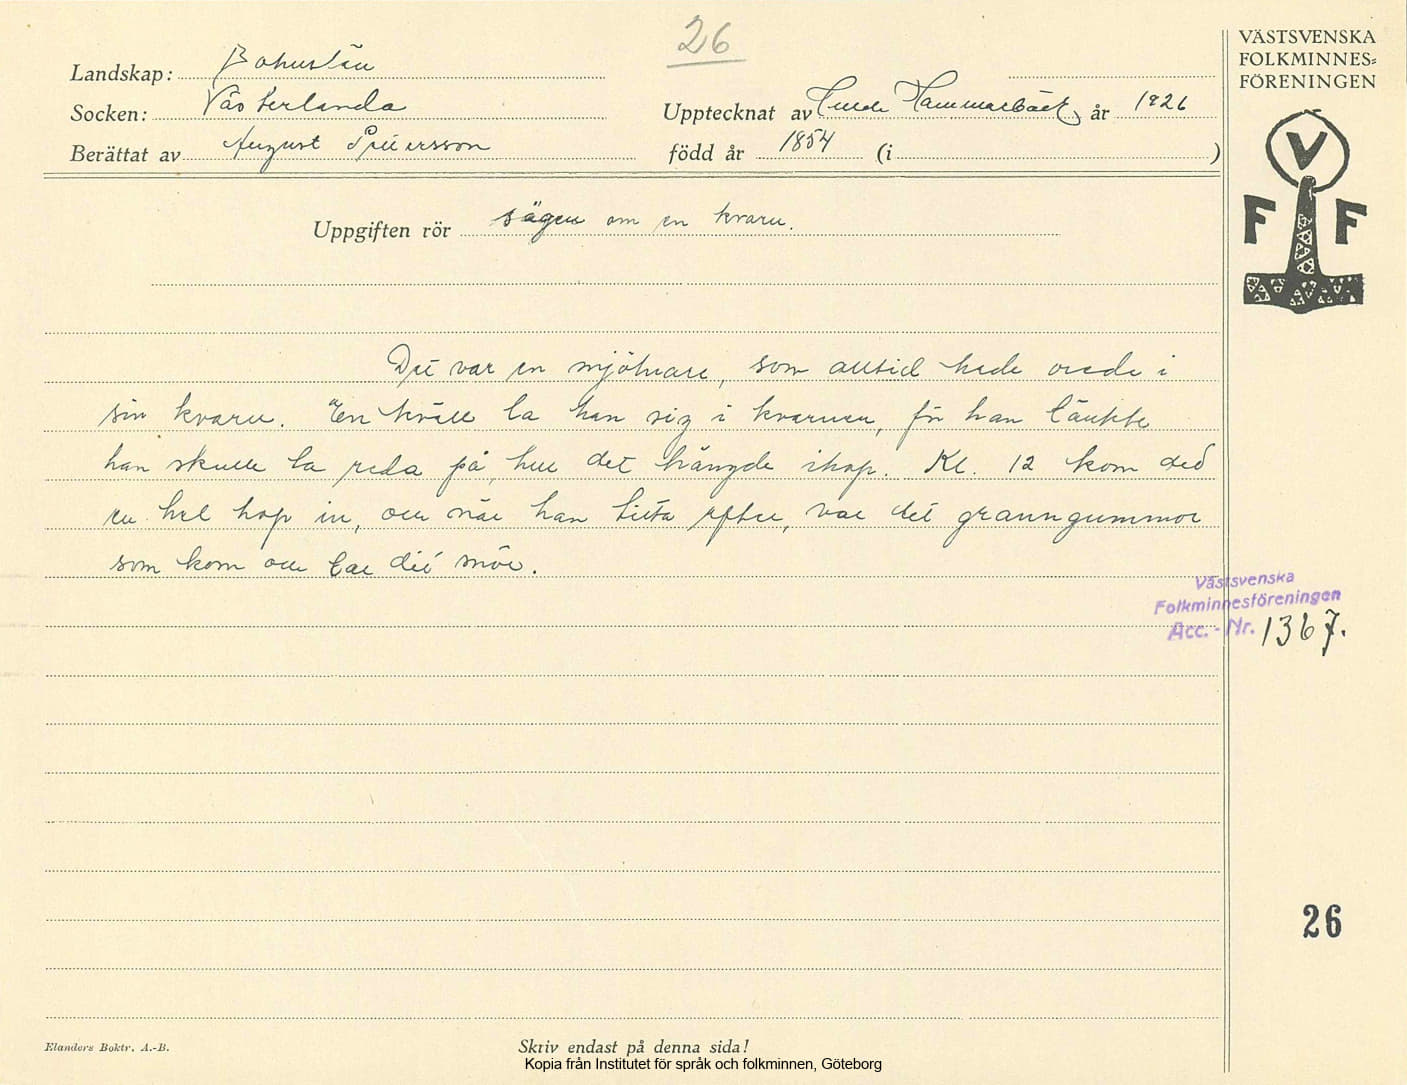 26
VÄSTSVENSKA
FOLKMINNES=
FÖRENINGEN
Landskap: Bohuslän
Socken: Västerlanda
Upptecknat av Hammarbäck, år 1926
Berättat av August Pettersson
född år 1854 (i )
V
F F
Uppgiften rör sägen om en kvarn.
Det var en mjölnare, som alltid hade oreda i
sin kvarn. En kväll la han sig i kvarnen, för han tänkte
han skulle ta reda på, hur det hängde ihop. Kl. 12 kom ded
en hel hop in, och när han titta efter, var det granngummor
som kom och mör.
Västsvenska
Folkminnesföreningen
Acc.-Nr. 1367.
26
Elanders Boktr. A.-B.
Skriv endast på denna sida!
Kopia från Institutet för språk och folkminnen, Göteborg